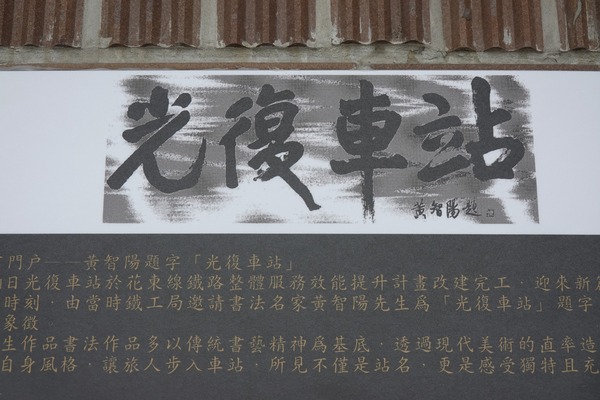 光復車站
黃智陽題
門戶——黃智陽題字「光復車站」
日光復車站於花東線鐵路整體服務效能提升計畫改建完工，迎來新篇
時刻，由當時鐵工局邀請書法名家黃智陽先生為「光復車站」題字
象徵
生作品書法作品多以傳統書藝精神為基底，透過現代美術的直率造
自身風格，讓旅人步入車站，所見不僅是站名，更是感受獨特且充